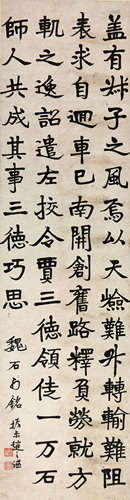 盖有叔子之風焉以天難升轉輸難阻
表求自迴車已南開創舊路釋負勞就方
軌之逸詔遣左挍令賈三德領徒一万石
師人共成其事三德巧思
魏石門銘 撝叔趙之謙